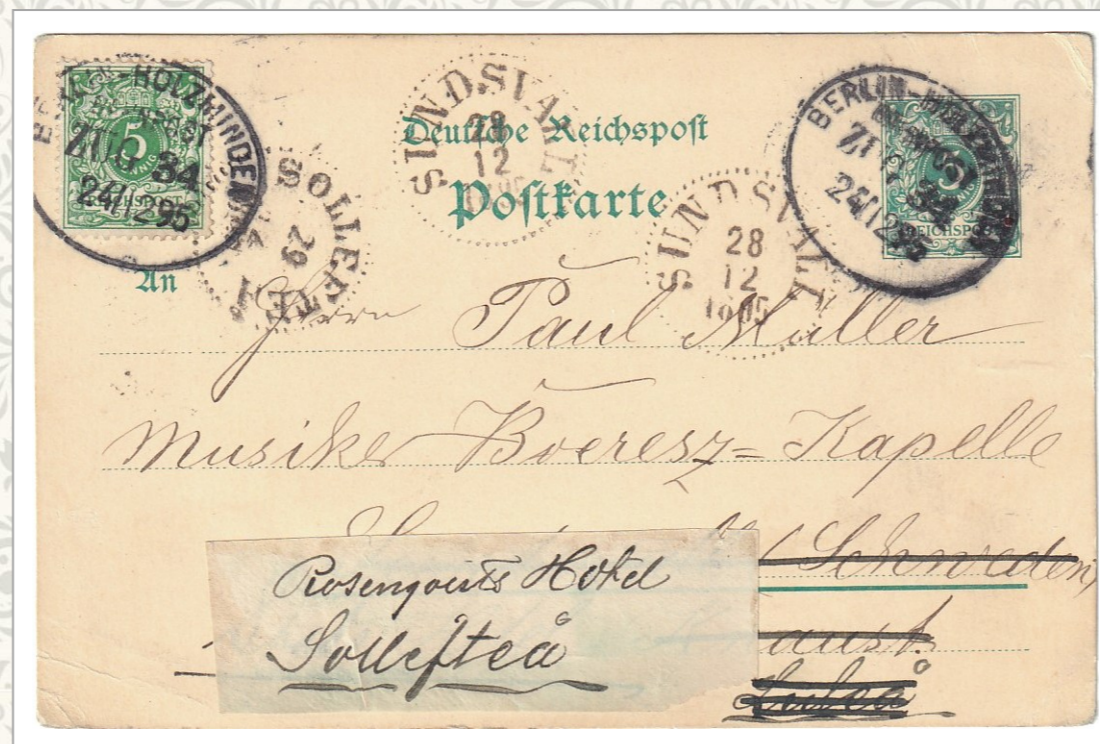 BERLIN-HOLZMINDEN
ZUG 34
24/12 95
5
PFENNIG
REICHSPOST
SUNDSVALL
28
12
SOLLEFTEÅ
29
12
Deutsche Reichspost
Postkarte
SUNDSVALL
28
12
1895
BERLIN-HOLZMINDEN
ZUG 34
24/12 95
5
REICHSPOST
An
Herrn Paul Müller
Musiker Boeresz=Kapelle
Schweden
Rosengrens Hotel
Sollefteå
Luleå